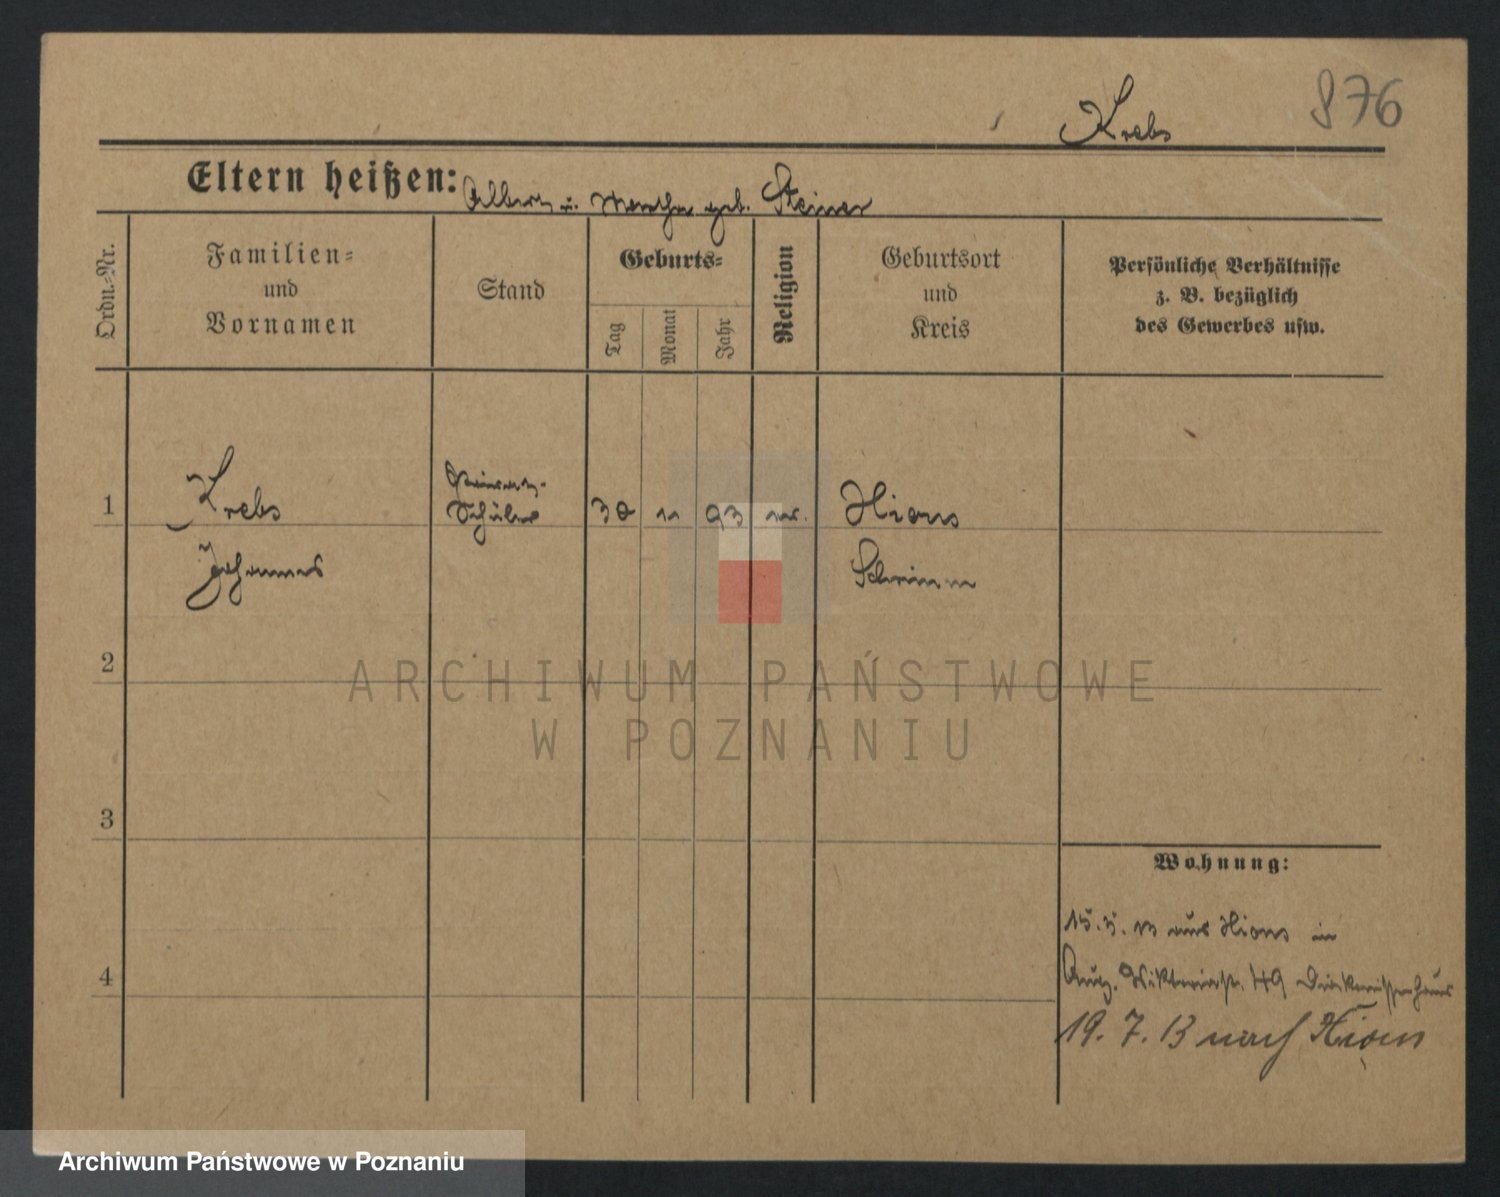 Krebs 876
Eltern heißen: Albert u. Martha geb. Steiner
Ordn.-Nr.
Familien-
und
Vornamen
Stand
Geburts-
Tag
Monat
Jahr
Religion
Geburtsort
und
Kreis
Persönliche Verhältnisse
z. B. bezüglich
des Gewerbes usw.
1 Krebs
Johannes
Schüler
30 11 93
Xions
Schrimm
2
3
4
Wohnung:
15. 5. 13 aus Xions in
Viktoriastr. 49 Diakonissenhaus
19. 7. 13 nach Xions
ARCHIWUM PAŃSTWOWE
W POZNANIU
Archiwum Państwowe w Poznaniu